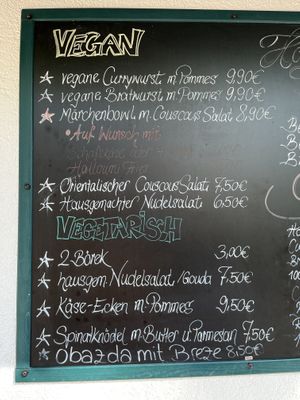 VEGAN
vegane Currywurst m. Pommes 9,90€
vegane Bratwurst m. Pommes 9,90€
Märchenbowl m. Couscous Salat 8,90€
• Auf Wunsch mit
Orientalischer Couscous Salat 7,50€
Hausgemachter Nudelsalat 6,50€
VEGETARISH
2 Börek 3,00€
hausgem. Nudelsalat/Gouda 7,50€
Käse-Ecken m. Pommes 9,50€
Spinatknödel m. Butter u. Parmesan 7,50€
Obazda mit Breze 8,50€